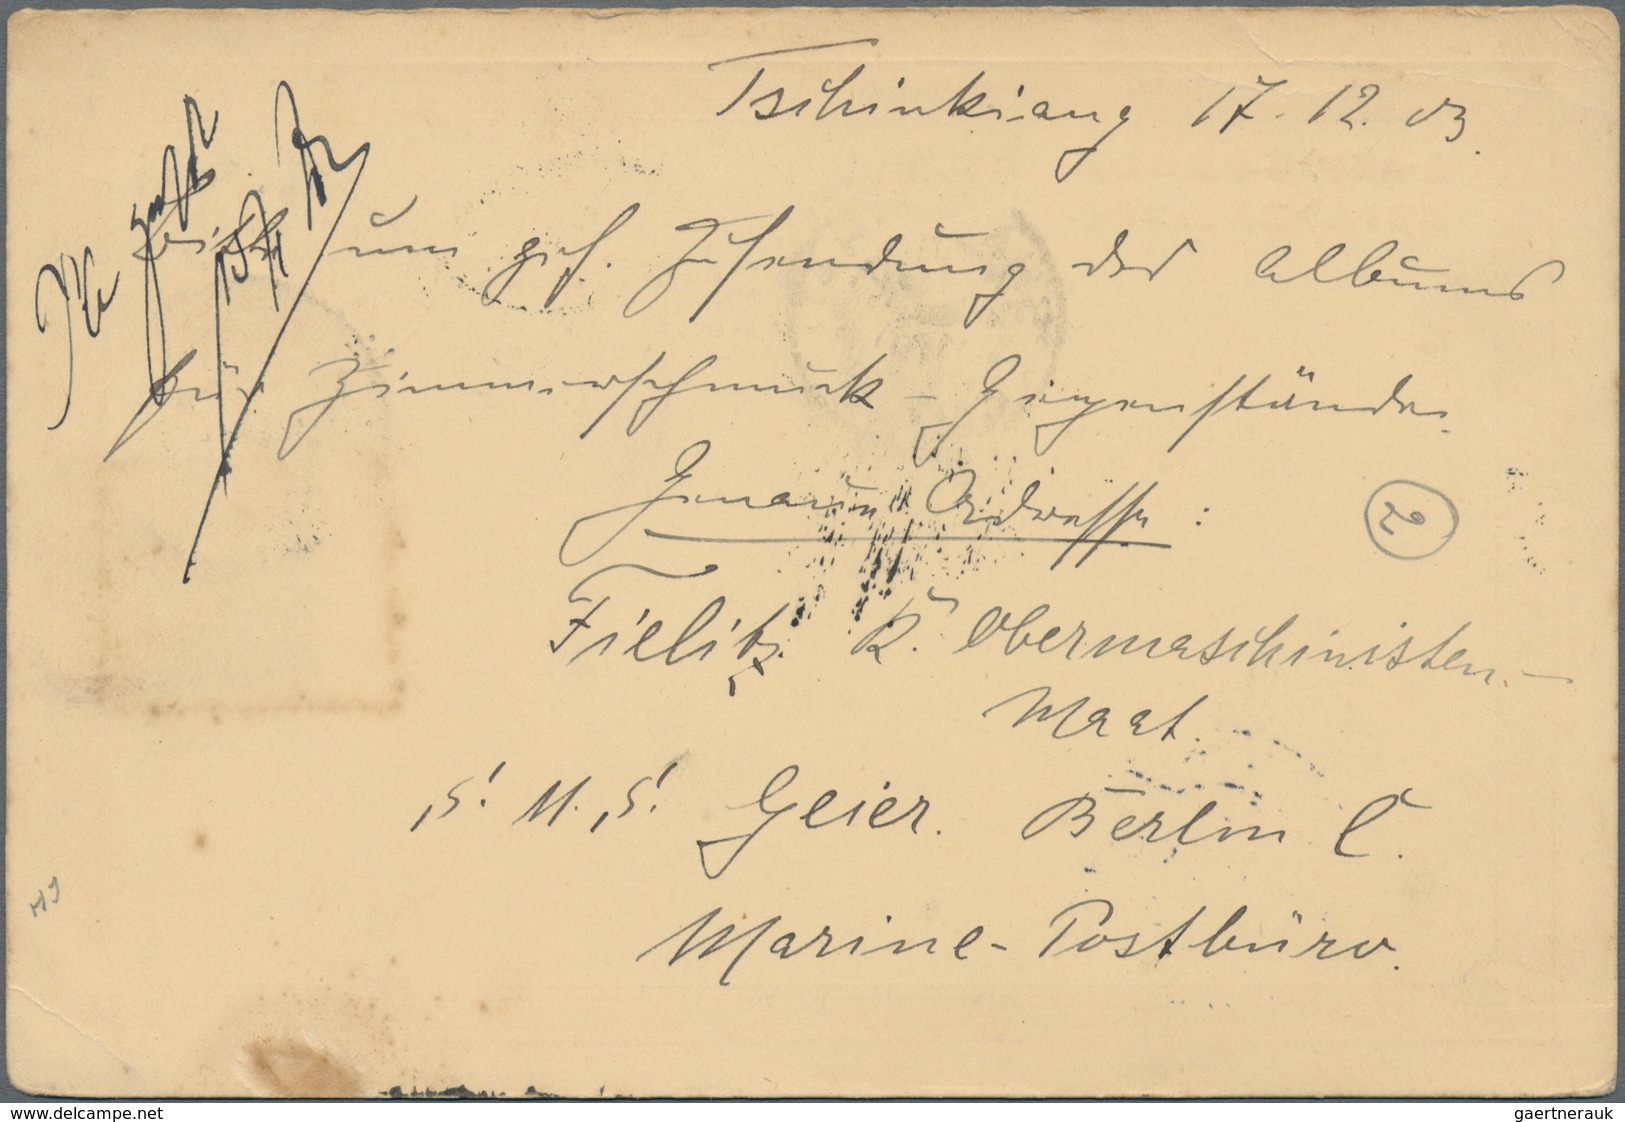 Tschinkiang 17. 12. 03.
Bitte um gef. Zusendung des Albums
für Zimmerschmuck-Gegenstände.
Genaue Adresse:
2
Fielitz. K. Obermaschinisten-
Maat.
S. M. S. Geier. Berlin C.
Marine-Postbüro.
the-stamp-collector.com
gaertnerauk